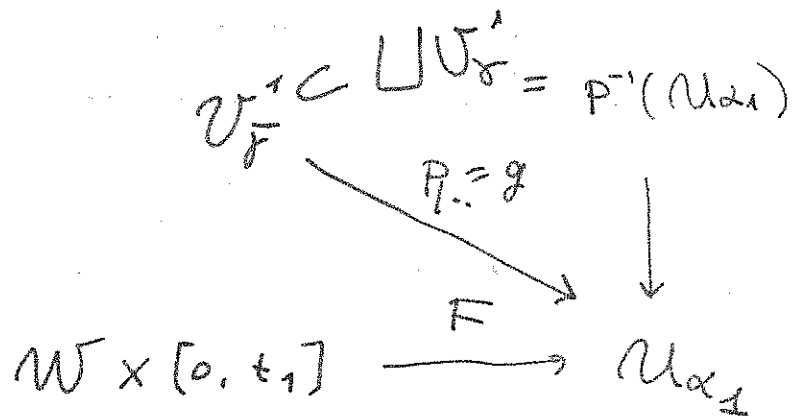 V_γ̄^1 ⊂ ⊔V_γ^1 = p^{-1}(U_{α_1})
p|.. = g
F
W × [0, t_1]
U_{α_1}